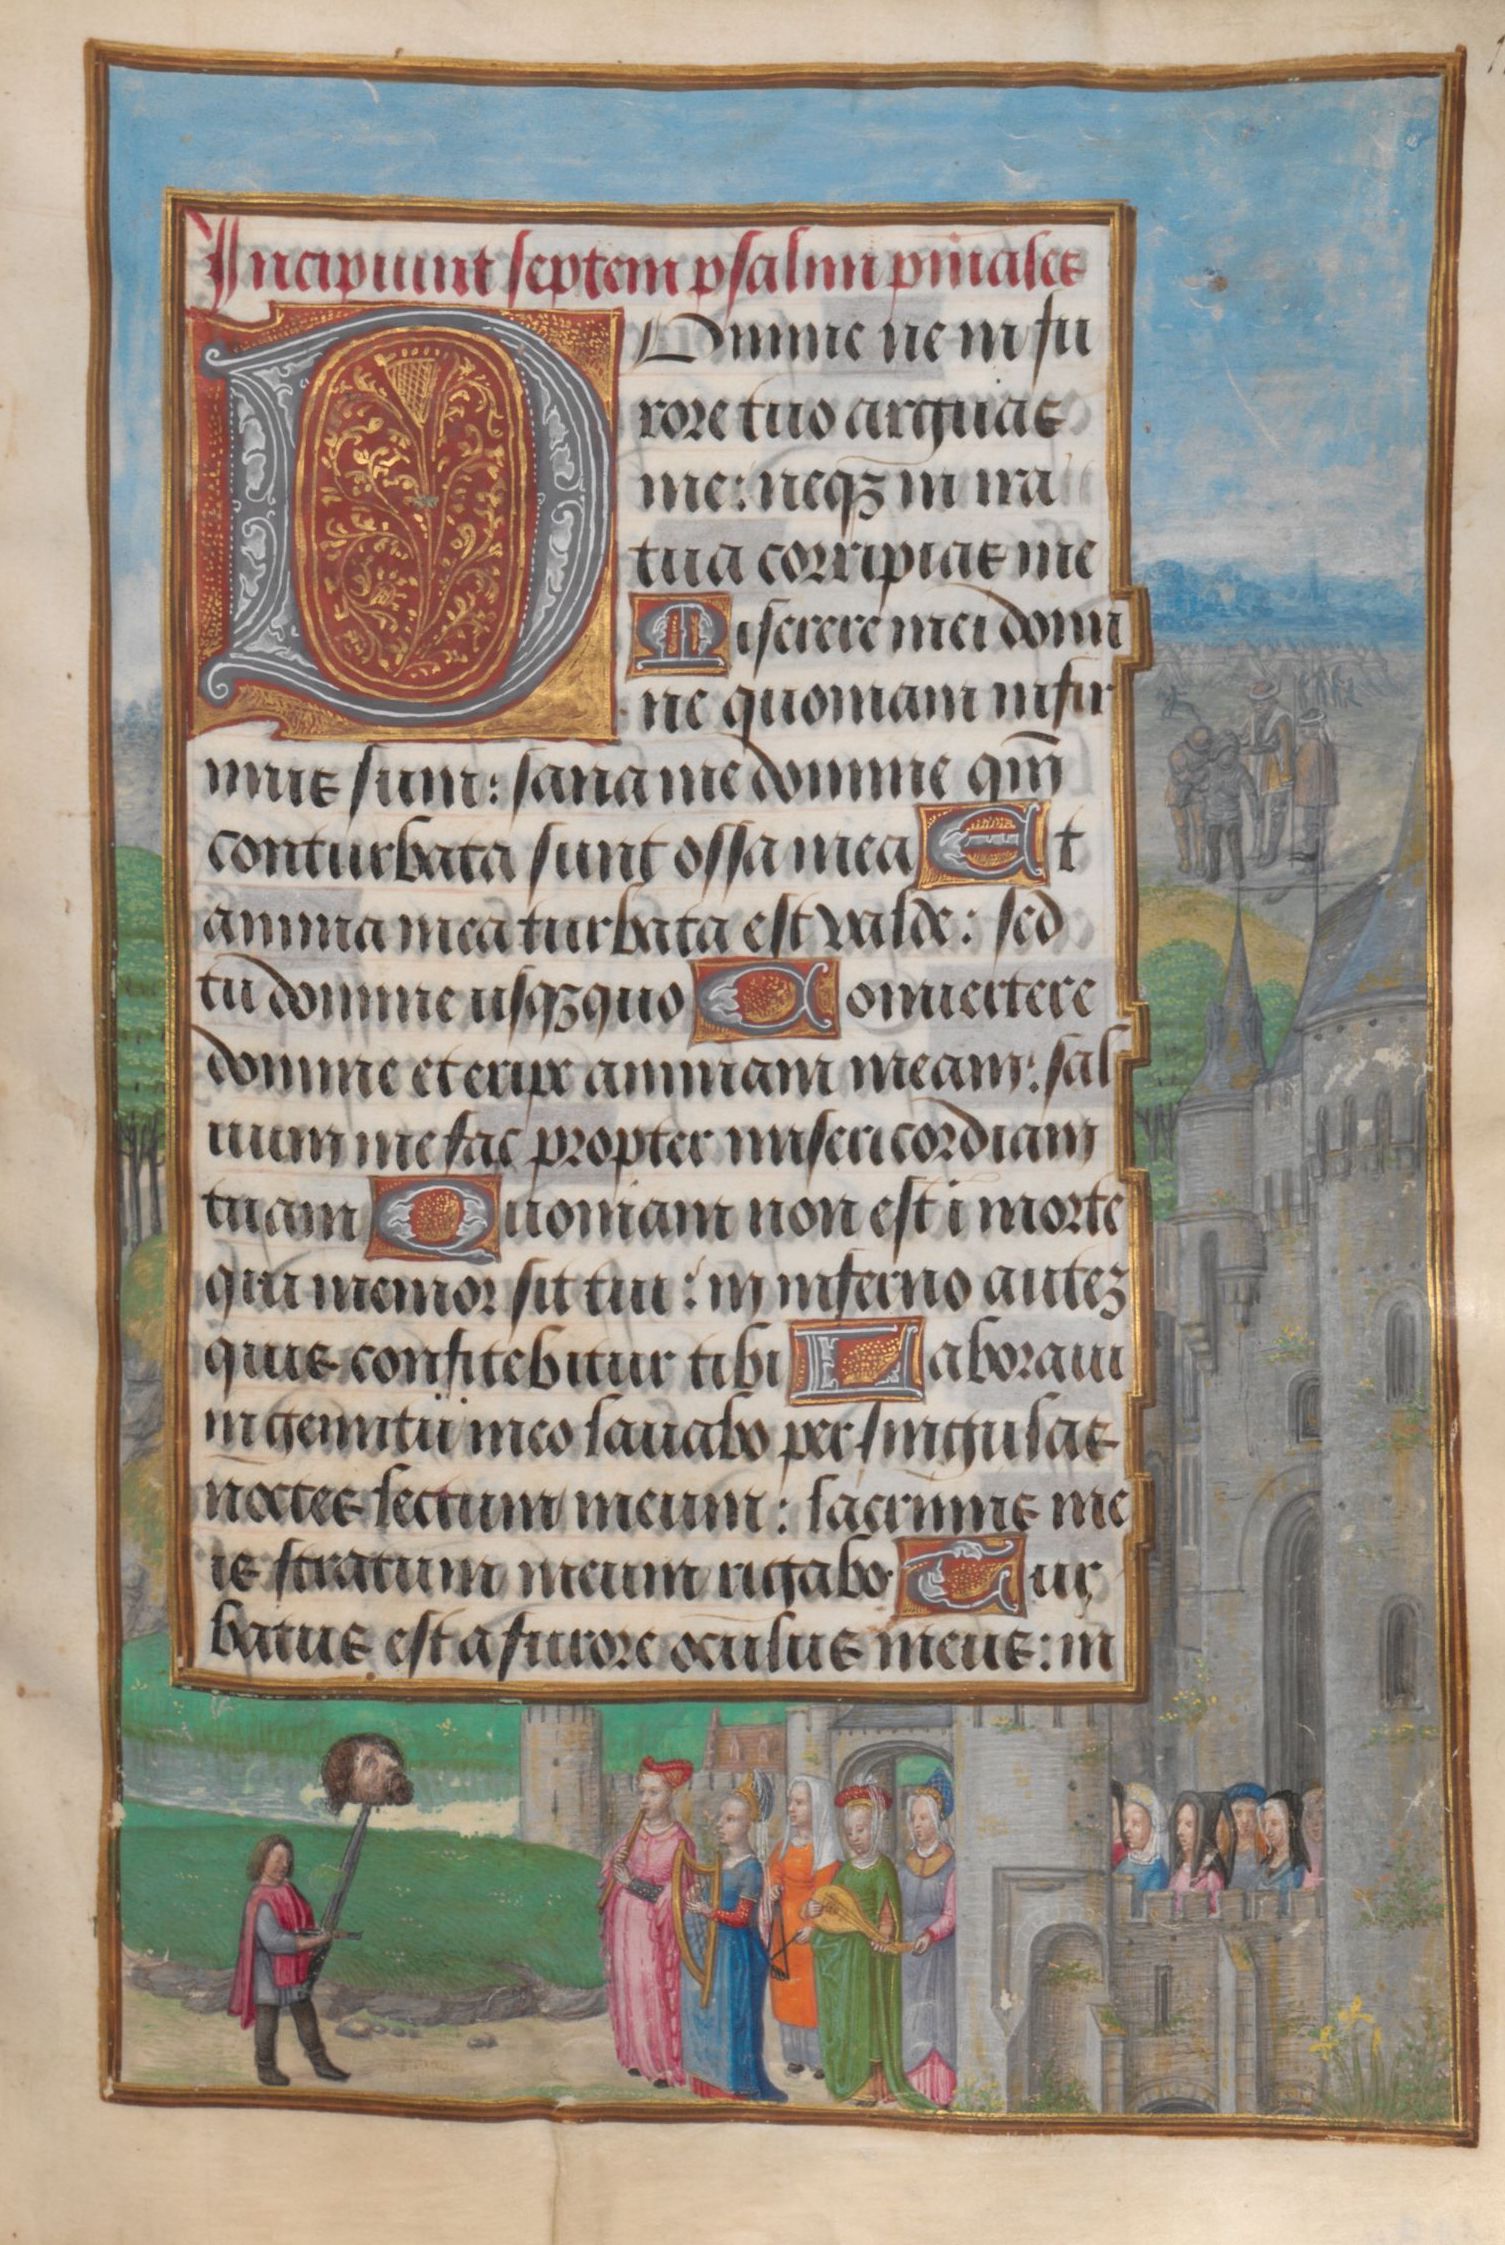 Incipiunt septem psalmi pniales
Domine ne in fu
rore tuo arguas
me: neqꝫ in ira
tua corripias me
Miserere mei domi
ne quoniam infir
mus sum: sana me domine qm̄
conturbata sunt ossa mea Et
anima mea turbata est valde: sed
tu domine usqꝫquo Conuertere
domine et eripe animam meam: sal
uum me fac propter misericordiam
tuam Quoniam non est ī morte
qui memor sit tui: in inferno auteꝫ
quis confitebitur tibi Laboraui
in gemitu meo lauabo per singulas
noctes lectum meum: lacrimis me
is stratum meum rigabo Tur
batus est a furore oculus meus: in